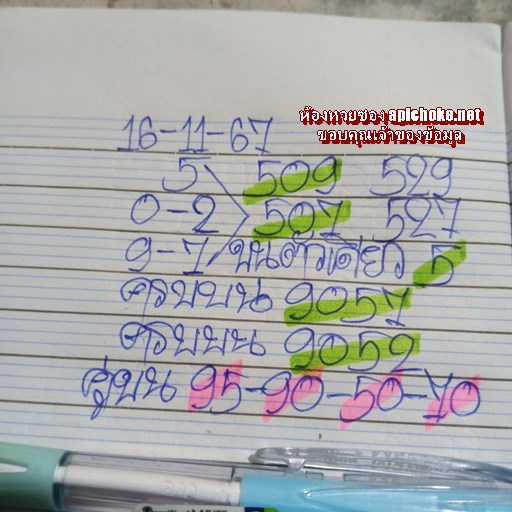 ห้องหวยซอง apichoke.net
ขอบคุณเจ้าของข้อมูล
16-11-67
5 509 529
0-2 507 527
9-7 บนตัวเดียว 5
ครบบน 9057
ครบบน 9052
คู่บน 95-90-50-70